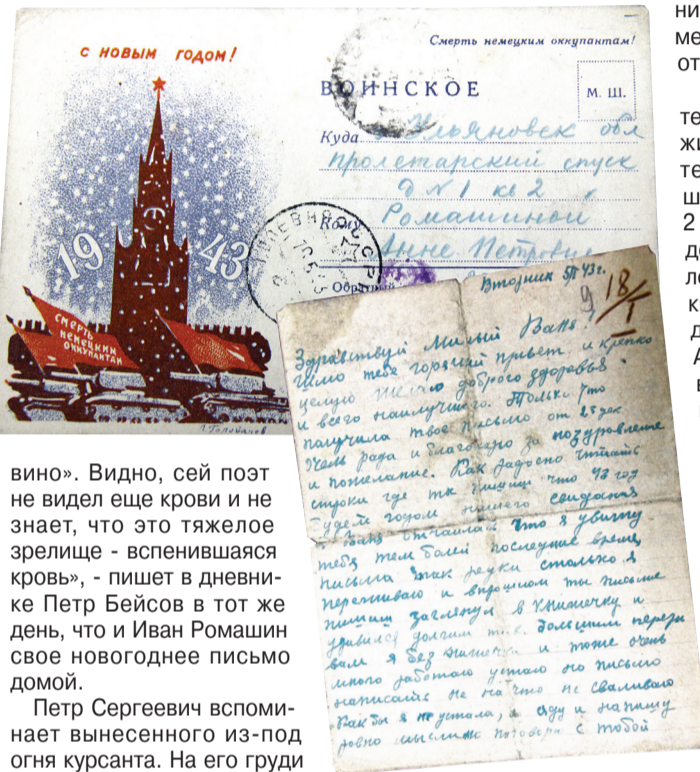 С НОВЫМ ГОДОМ!
19 43
СМЕРТЬ НЕМЕЦКИМ ОККУПАНТАМ
Смерть немецким оккупантам!
ВОИНСКОЕ
М. Ш.
Куда Ульяновск обл
Пролетарский спуск
д N 1 кв 2
Кому Ромашиной
Анне Петровне
Обратный
Вторник 5/I 43 г.
18/I
Здравствуй Милый Ваня!
Шлю тебе горячий привет и крепко
целую желаю доброго здоровья
и всего наилучшего. Только что
получила твое письмо от 25 дек
рада и благодарю за поздравление
и пожелание. Как радостно читать
строки где ты пишиш что 43 год
будет годом нашего свидания
Ваня отчаилась что я увижу
тебя тем более последнее время
письма так редки столько я
переживаю и в прошлом ты письме
пишиш заглянул в книжечку и
удивился долгим т.е. большим переры
вам я без книжечки и тоже очень
много работаю устаю но письмо
написать не на что не сваливаю
Как бы я не устала, а сяду и напишу
ровно мысленно поговорю с тобой
вино». Видно, сей поэт
не видел еще крови и не
знает, что это тяжелое
зрелище - вспенившаяся
кровь», - пишет в дневни-
ке Петр Бейсов в тот же
день, что и Иван Ромашин
свое новогоднее письмо
домой.
Петр Сергеевич вспоми-
нает вынесенного из-под
огня курсанта. На его груди
ни
ме
от
те
жи
те
ш
2
де
ло
к
д
А
в